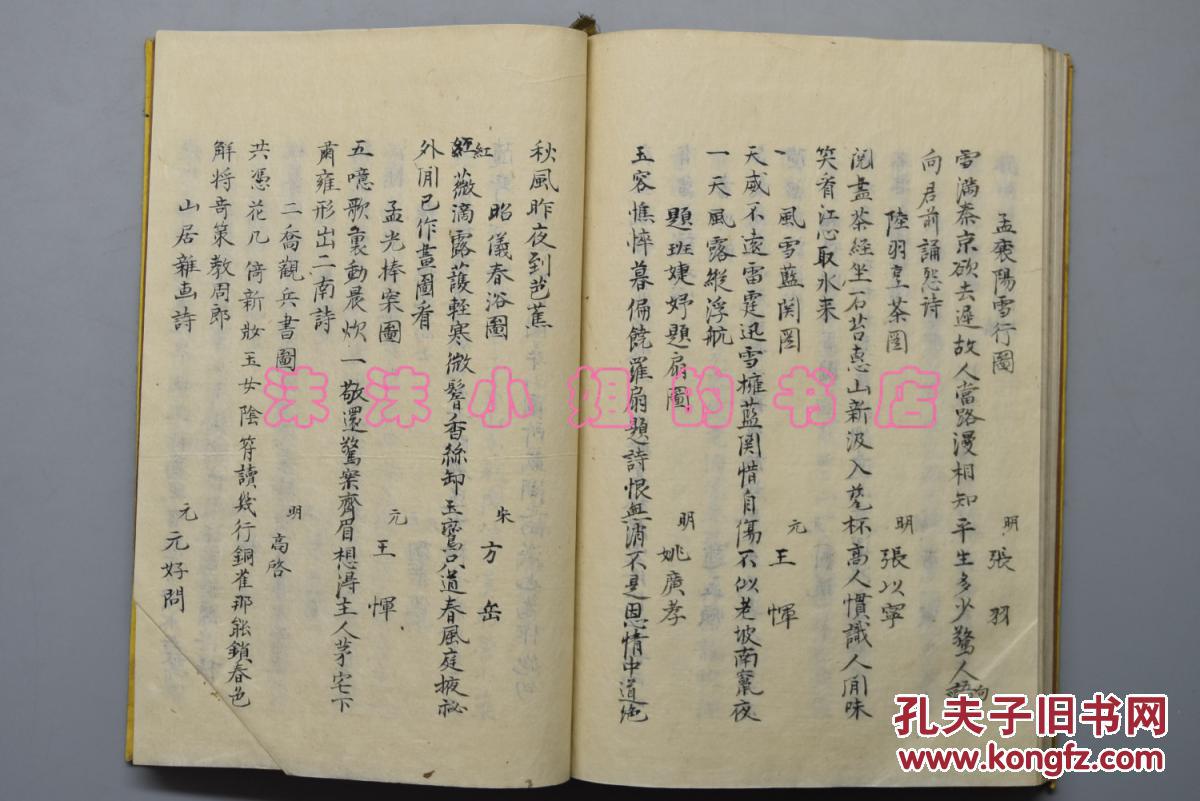 孟襄陽雪行圖
明 張羽
雪滿秦京欲去遲故人當路漫相知平生多少驚人語句
向君前誦怨詩
陸羽烹茶圖
明 張以寧
閱盡茶経坐石苔惠山新汲入甆杯高人慣識人间味
笑看江心取水来
風雪藍関圖
元 王惲
天威不遠雷霆迅雪擁藍関惜自傷不似老坡南竄夜
一天風露縱浮航
題班婕妤題扇圖
明 姚廣孝
玉容憔悴暮偏饒羅扇題詩恨無消不是恩情中道絶
秋風昨夜到芭蕉
昭儀春浴圖
宋 方岳
紅薇滴露護輕寒微鬌香絲卸玉鸞只道春風庭掖祕
外间已作畫圖看
孟光棒案圖
元 王惲
五噫歌裏動晨炊一敬還驚案齊眉想得主人茅宅下
肅雍形出二南詩
二喬觀兵書圖
明 高啓
共憑花几倚新妝玉女陰符讀幾行銅雀那能鎖春色
解将奇策教周郎
山居雜画詩
元 元好問
沫沫小姐的书店
孔夫子旧书网
www.kongfz.com